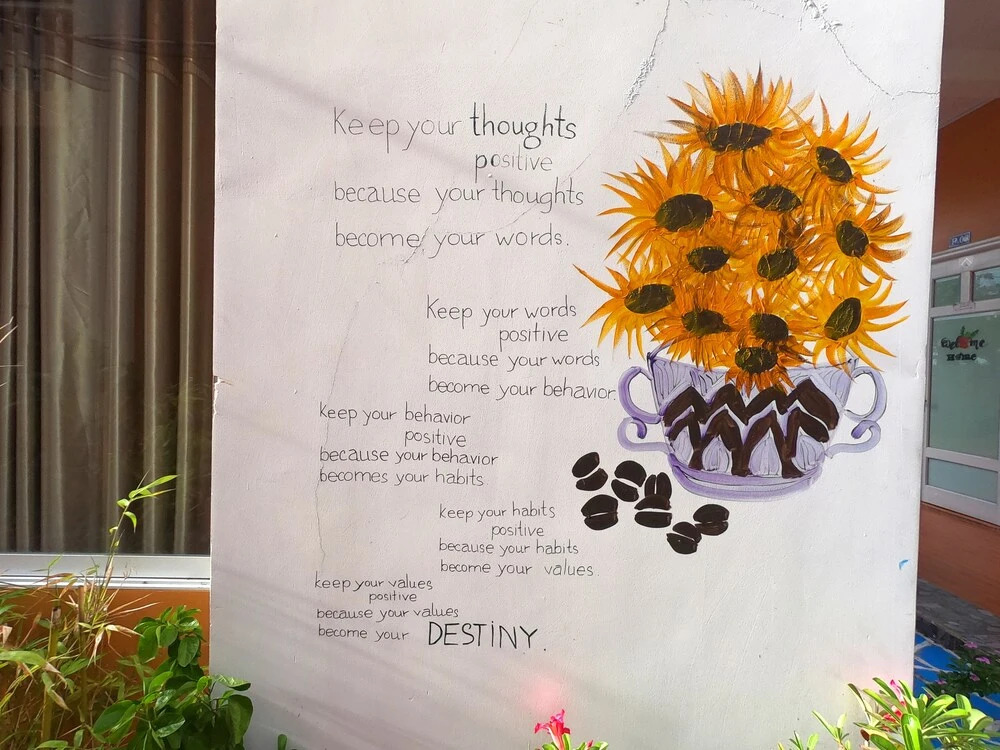 Keep your thoughts
positive
because your thoughts
become your words.
Keep your words
positive
because your words
become your behavior.
keep your behavior
positive
because your behavior
becomes your habits
keep your habits
positive
because your habits
become your values.
keep your values
positive
because your values
become your DESTINY.
Welcome
Home